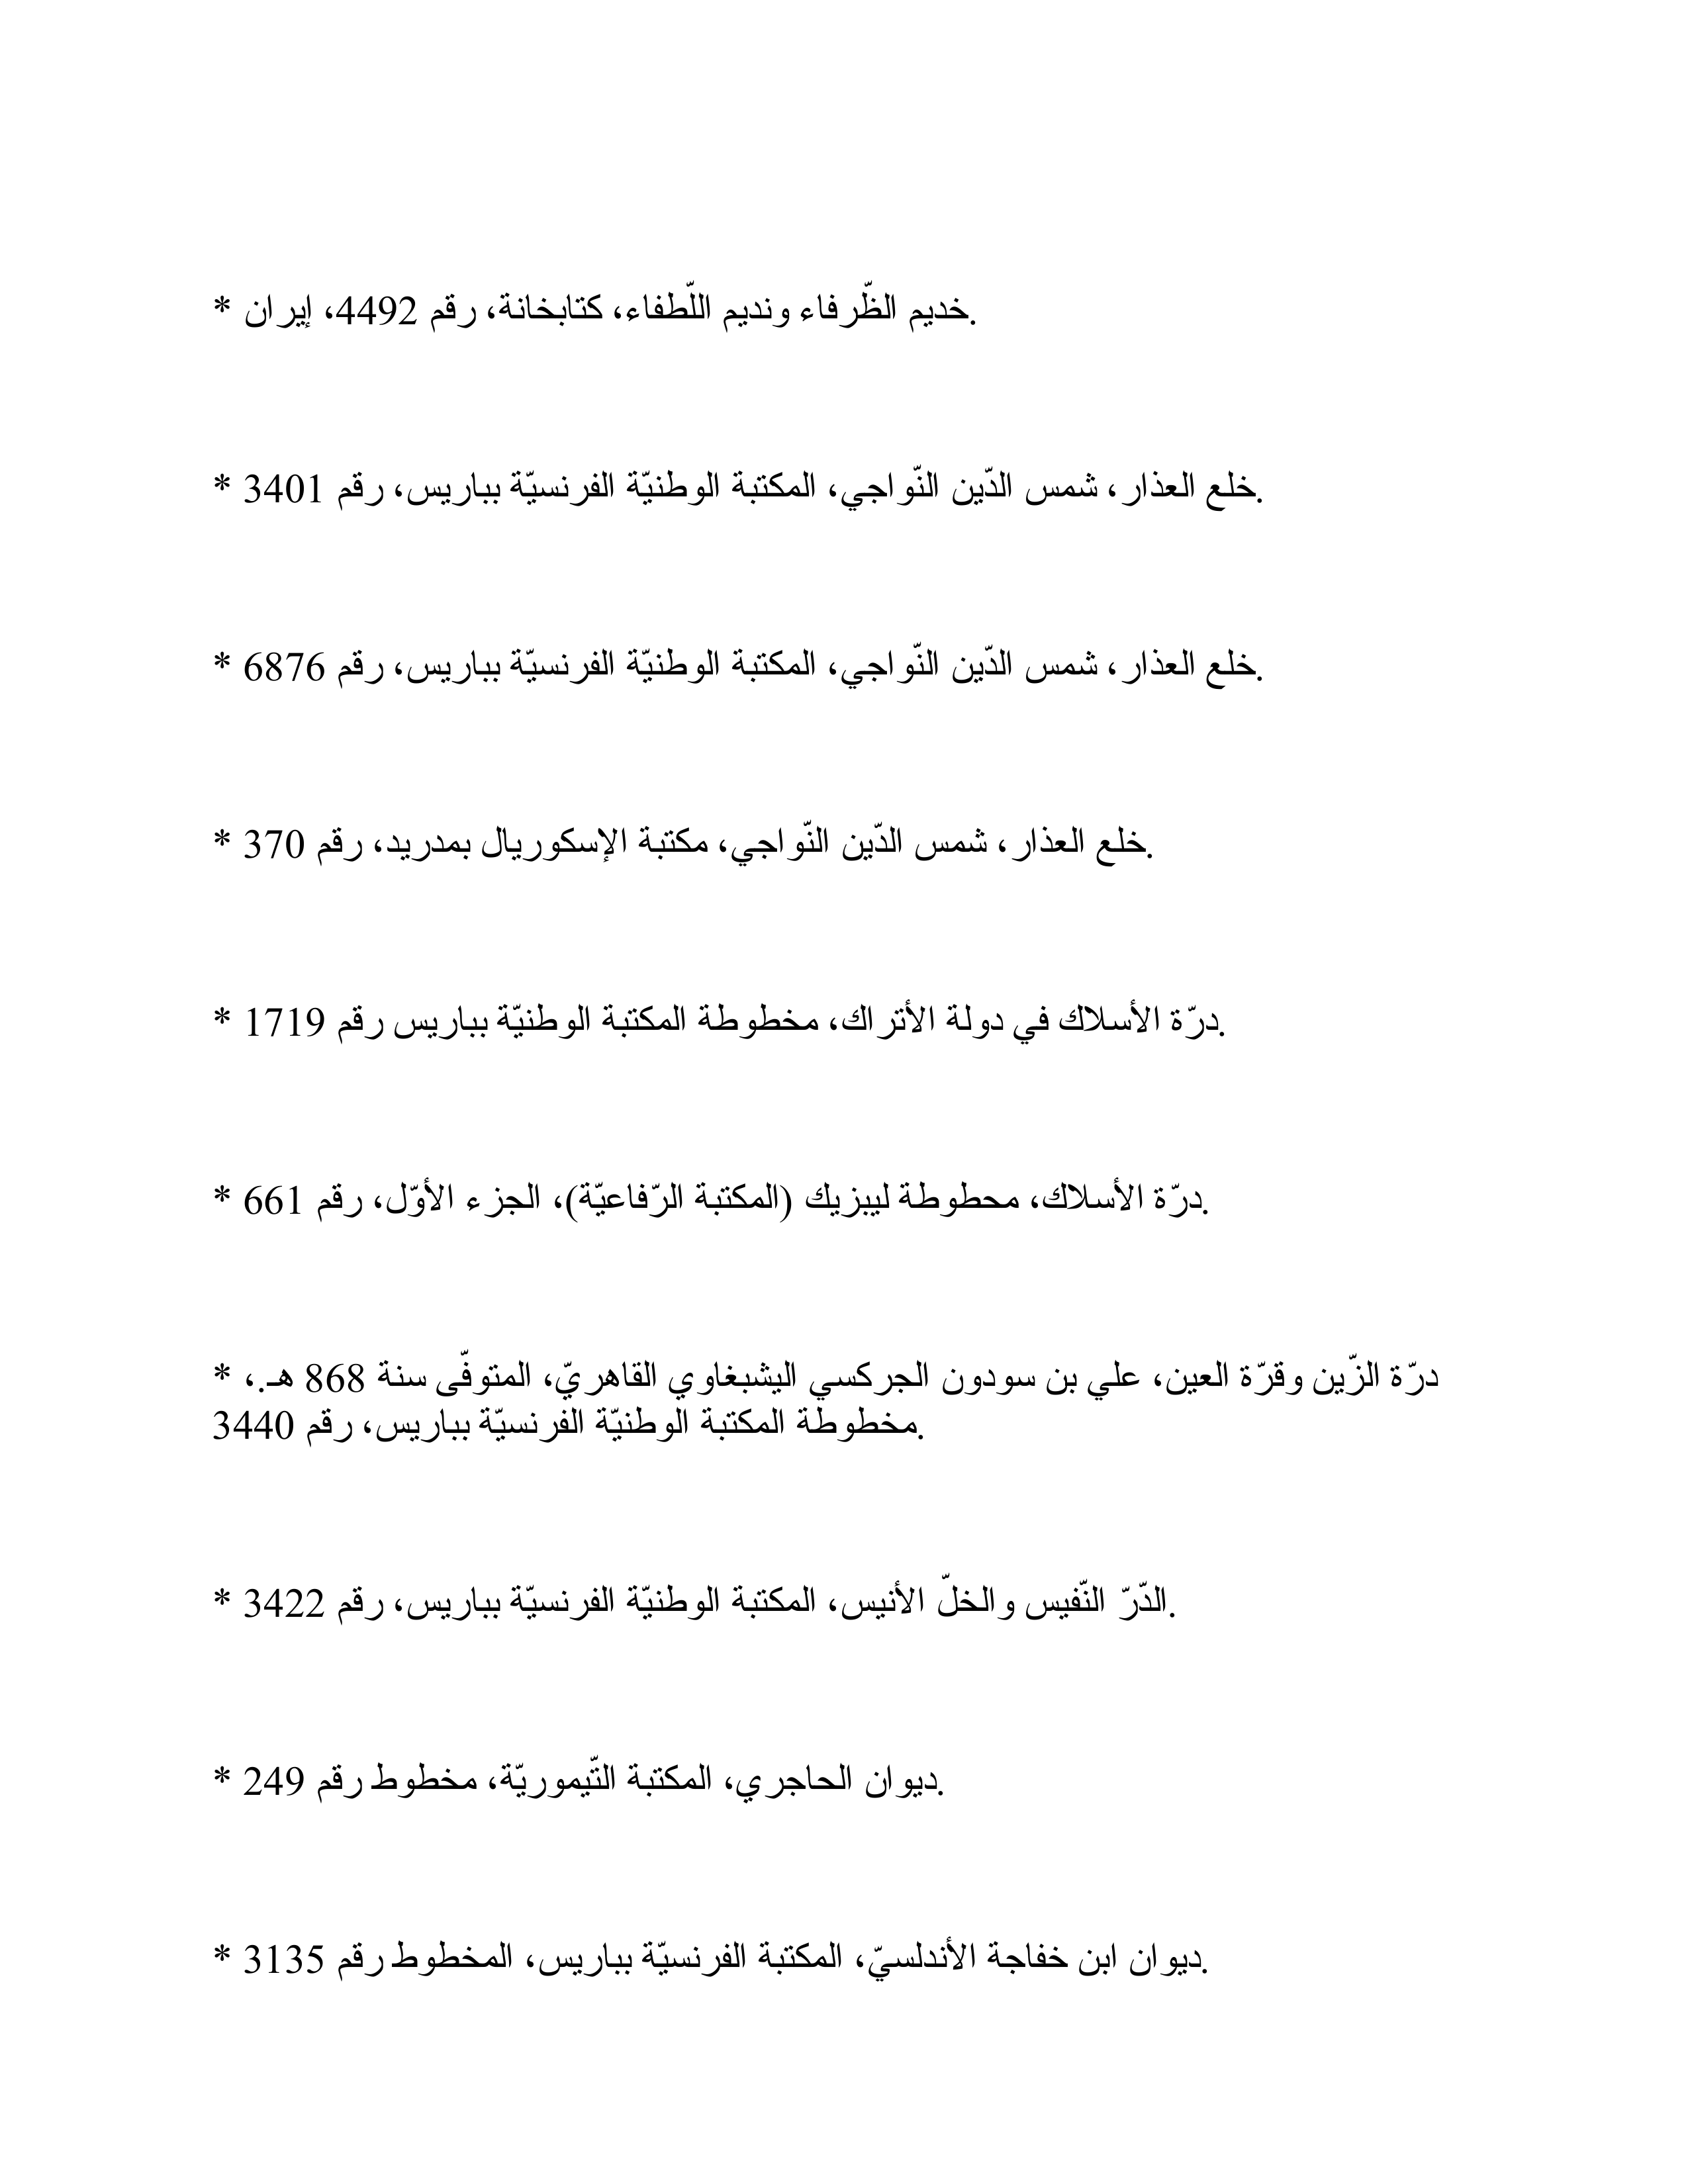 * خديم الظّرفاء ونديم اللّطفاء، كتابخانة، رقم 4492، إيران.
* خلع العذار، شمس الدّين النّواجي، المكتبة الوطنيّة الفرنسيّة بباريس، رقم 3401.
* خلع العذار، شمس الدّين النّواجي، المكتبة الوطنيّة الفرنسيّة بباريس، رقم 6876.
* خلع العذار، شمس الدّين النّواجي، مكتبة الإسكوريال بمدريد، رقم 370.
* درّة الأسلاك في دولة الأتراك، مخطوطة المكتبة الوطنيّة بباريس رقم 1719.
* درّة الأسلاك، محطوطة ليبزيك (المكتبة الرّفاعيّة)، الجزء الأوّل، رقم 661.
* درّة الزّين وقرّة العين، علي بن سودون الجركسي اليشبغاوي القاهريّ، المتوفّى سنة 868 هـ.،
مخطوطة المكتبة الوطنيّة الفرنسيّة بباريس، رقم 3440.
* الدّرّ النّفيس والخلّ الأنيس، المكتبة الوطنيّة الفرنسيّة بباريس، رقم 3422.
* ديوان الحاجري، المكتبة التّيموريّة، مخطوط رقم 249.
* ديوان ابن خفاجة الأندلسيّ، المكتبة الفرنسيّة بباريس، المخطوط رقم 3135.